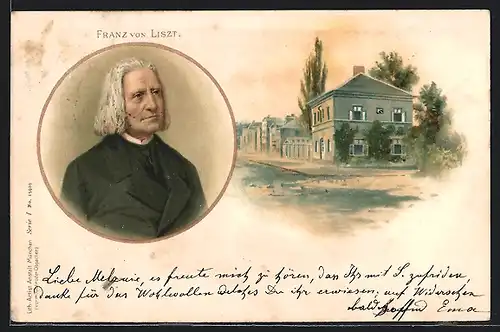 FRANZ VON LISZT.
Lith. Artist. Anstalt München Serie I
Liebe Melanie, es freute mich zu hören, dass Ihr mit S. zufrieden,
danke für das Wohlwollen welches Du ihr erwiesen, auf Wiedersehen
baldhoffend Ema